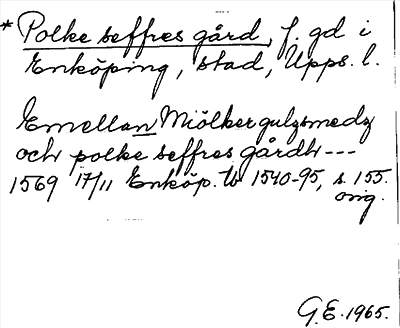 * Polke seffres gård, f. gd i
Enköping, stad, Upps. l.
Emellan Miölker gulzsmedz
och polke seffres gårdh ---
1569 17/11 Enköp. tb 1540-95, s. 155.
orig.
G.E. 1965.